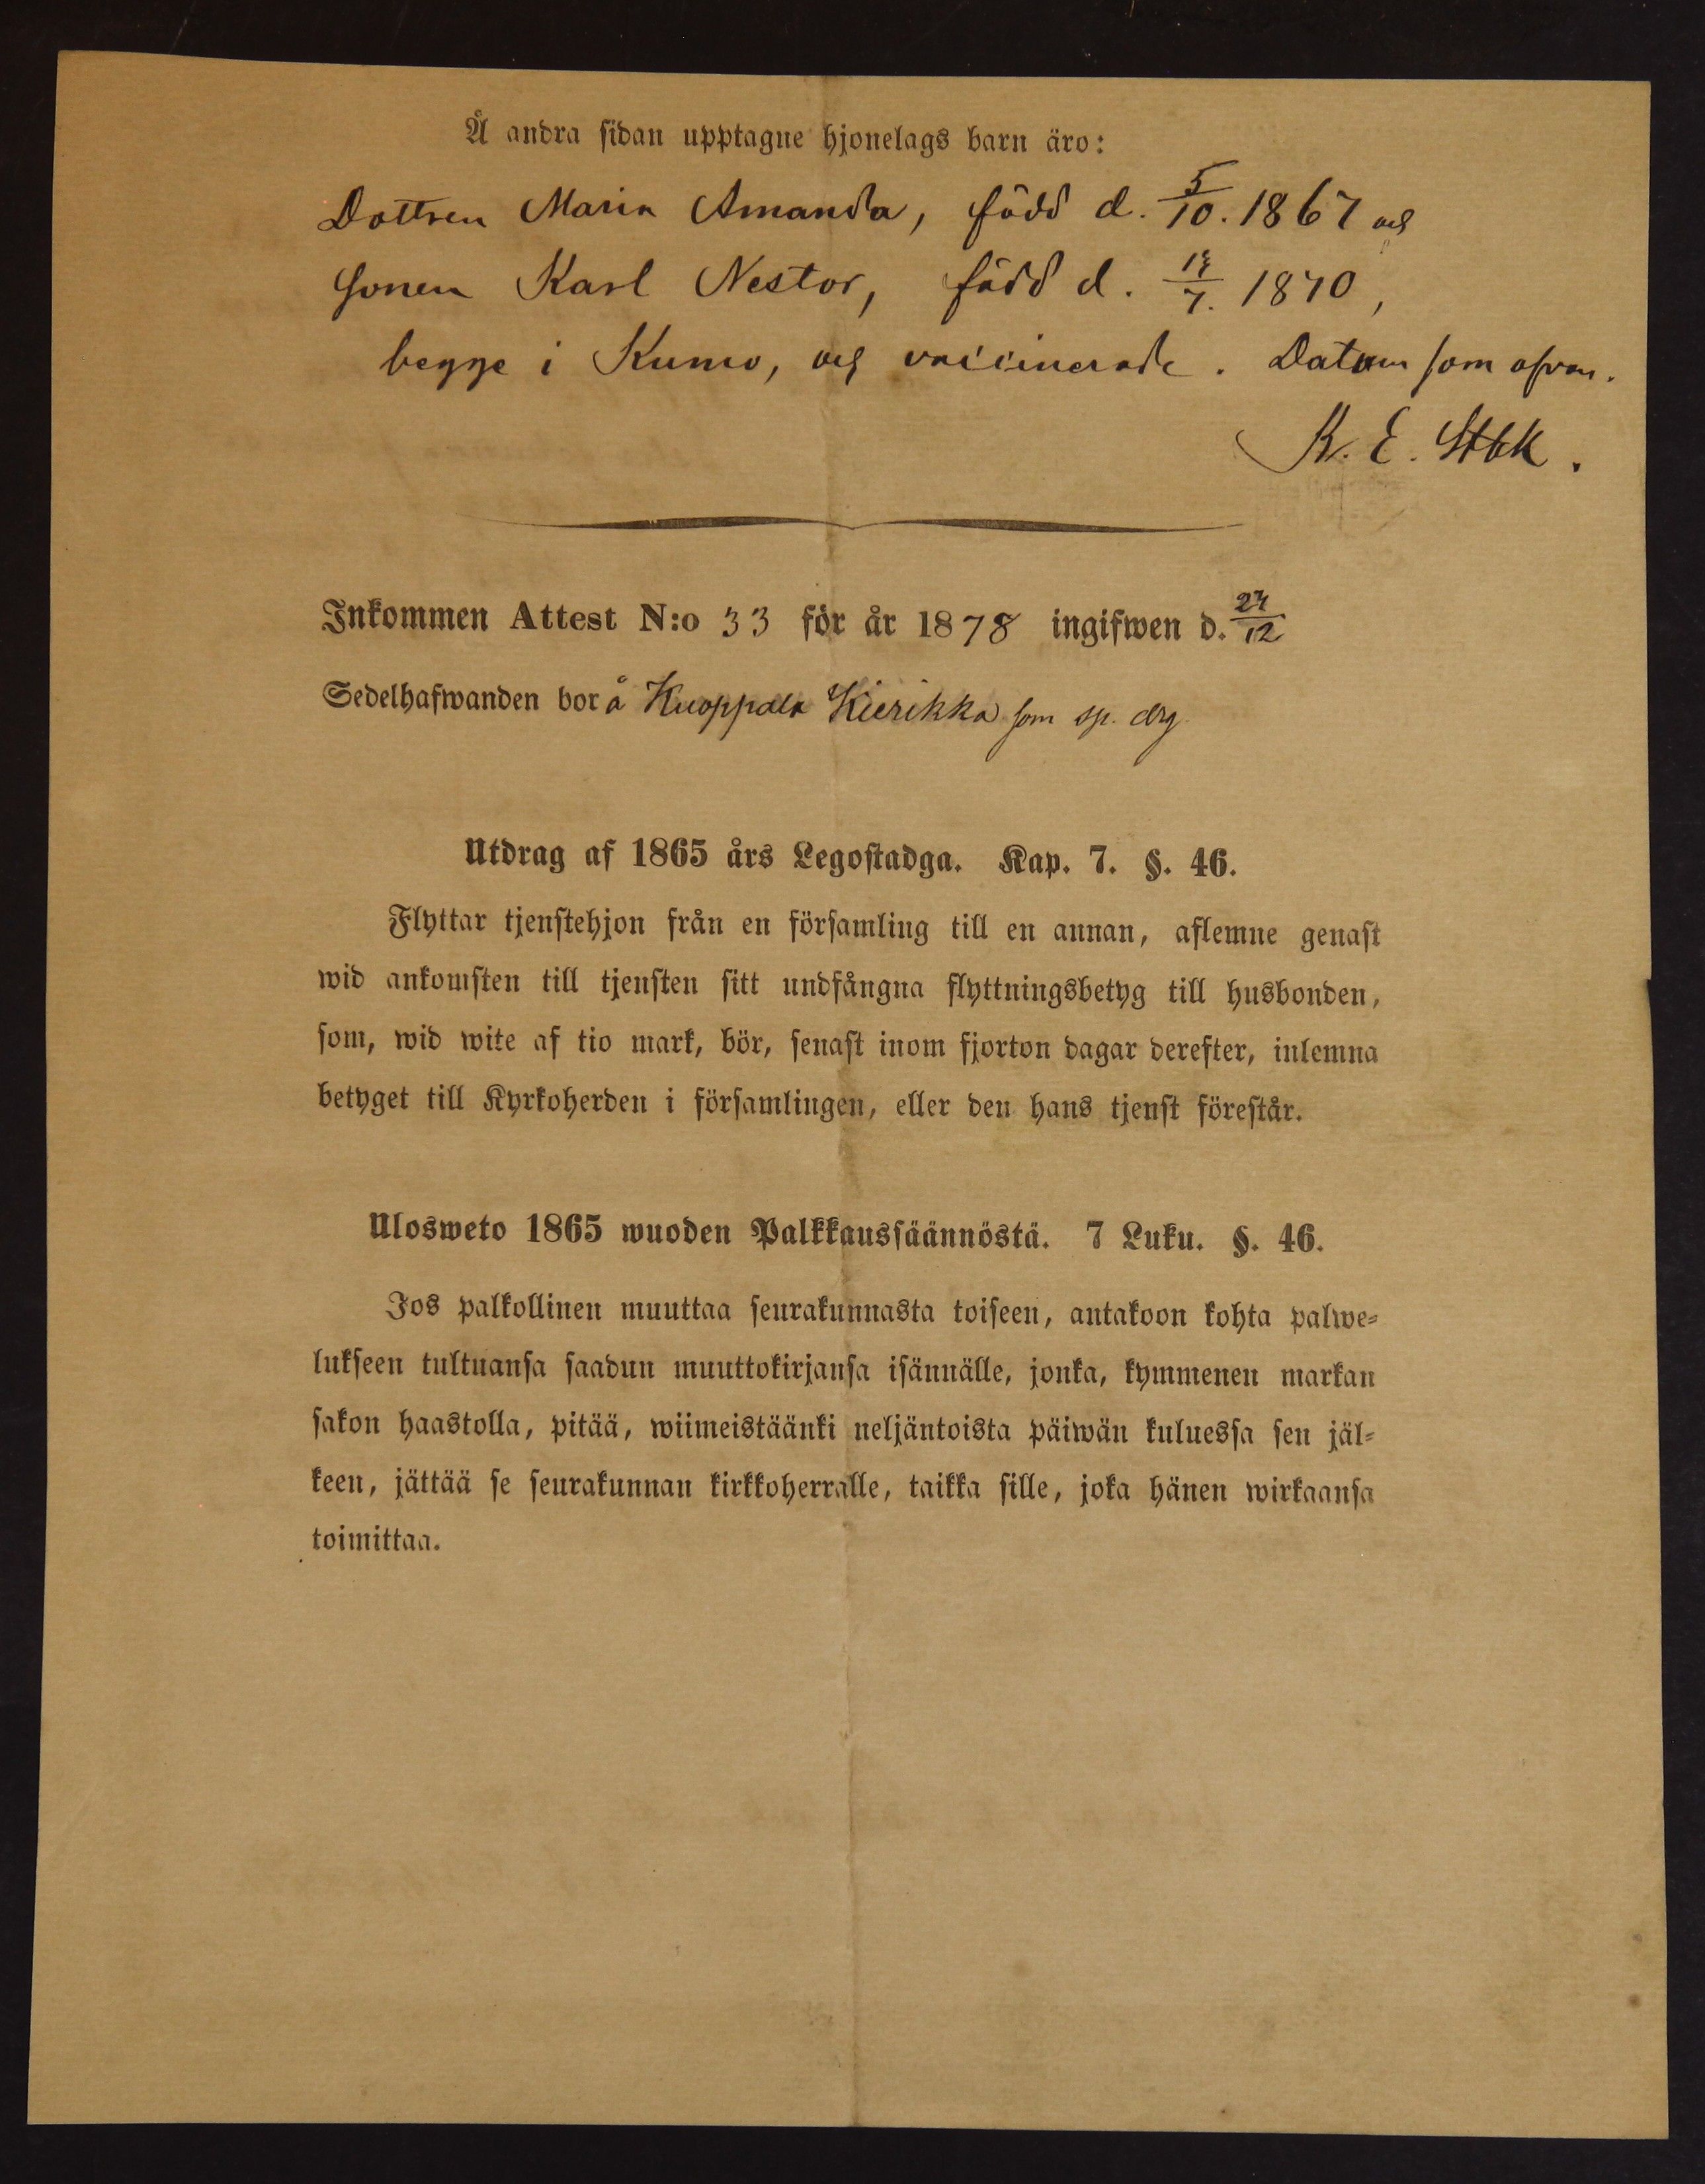 Å andra sidan upptagne hjonelags barn äro:
Dottren Maria Amanda, född d. 5/10. 1867 och
sonen Karl Nestor, född d. 7. 1870,
begge i Kumo, och vaccinerade. Datum som ofvan.
K. E. Stbk.
Inkommen Attest N:o 33 för år 1878 ingifwen d. /12
Sedelhafwanden bor å Kuoppala Kierikka som sp. drg
Utdrag af 1865 års Legostadga. Kap. 7. §. 46.
Flyttar tjenstehjon från en församling till en annan, aflemne genast
wid ankomsten till tjensten sitt undfångna flyttningsbetyg till husbonden,
som, wid wite af tio mark, bör, senast inom fjorton dagar derefter, inlemna
betyget till Kyrkoherden i församlingen, eller den hans tjenst förestår.
Ulosweto 1865 wuoden Palkkaussäännöstä. 7 Luku. §. 46.
Jos palkollinen muuttaa seurakunnasta toiseen, antakoon kohta palwe-
lukseen tultuansa saadun muuttokirjansa isännälle, jonka, kymmenen markan
sakon haastolla, pitää, wiimeistäänki neljäntoista päiwän kuluessa sen jäl-
keen, jättää se seurakunnan kirkkoherralle, taikka sille, joka hänen wirkaansa
toimittaa.